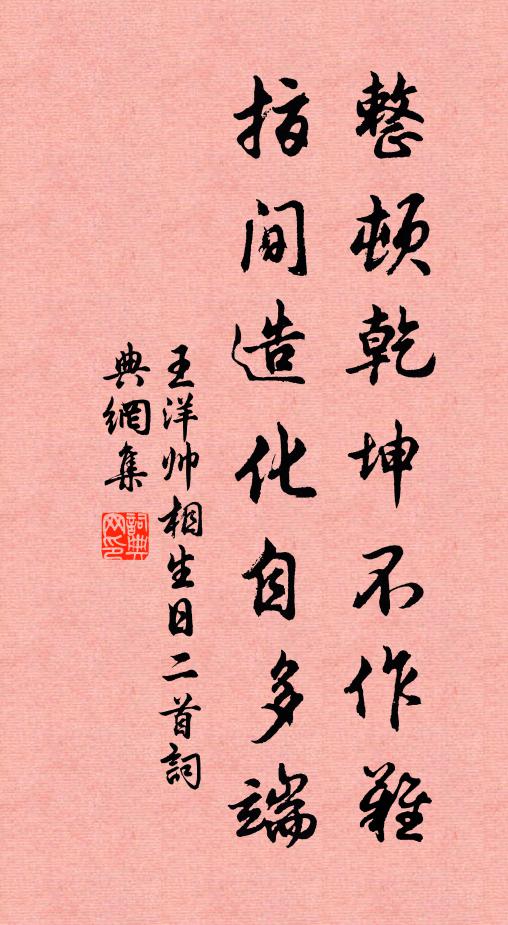 整頓乾坤不作難
指間造化自多端
王洋帅相生日二首詞
典網集
詞典
网印